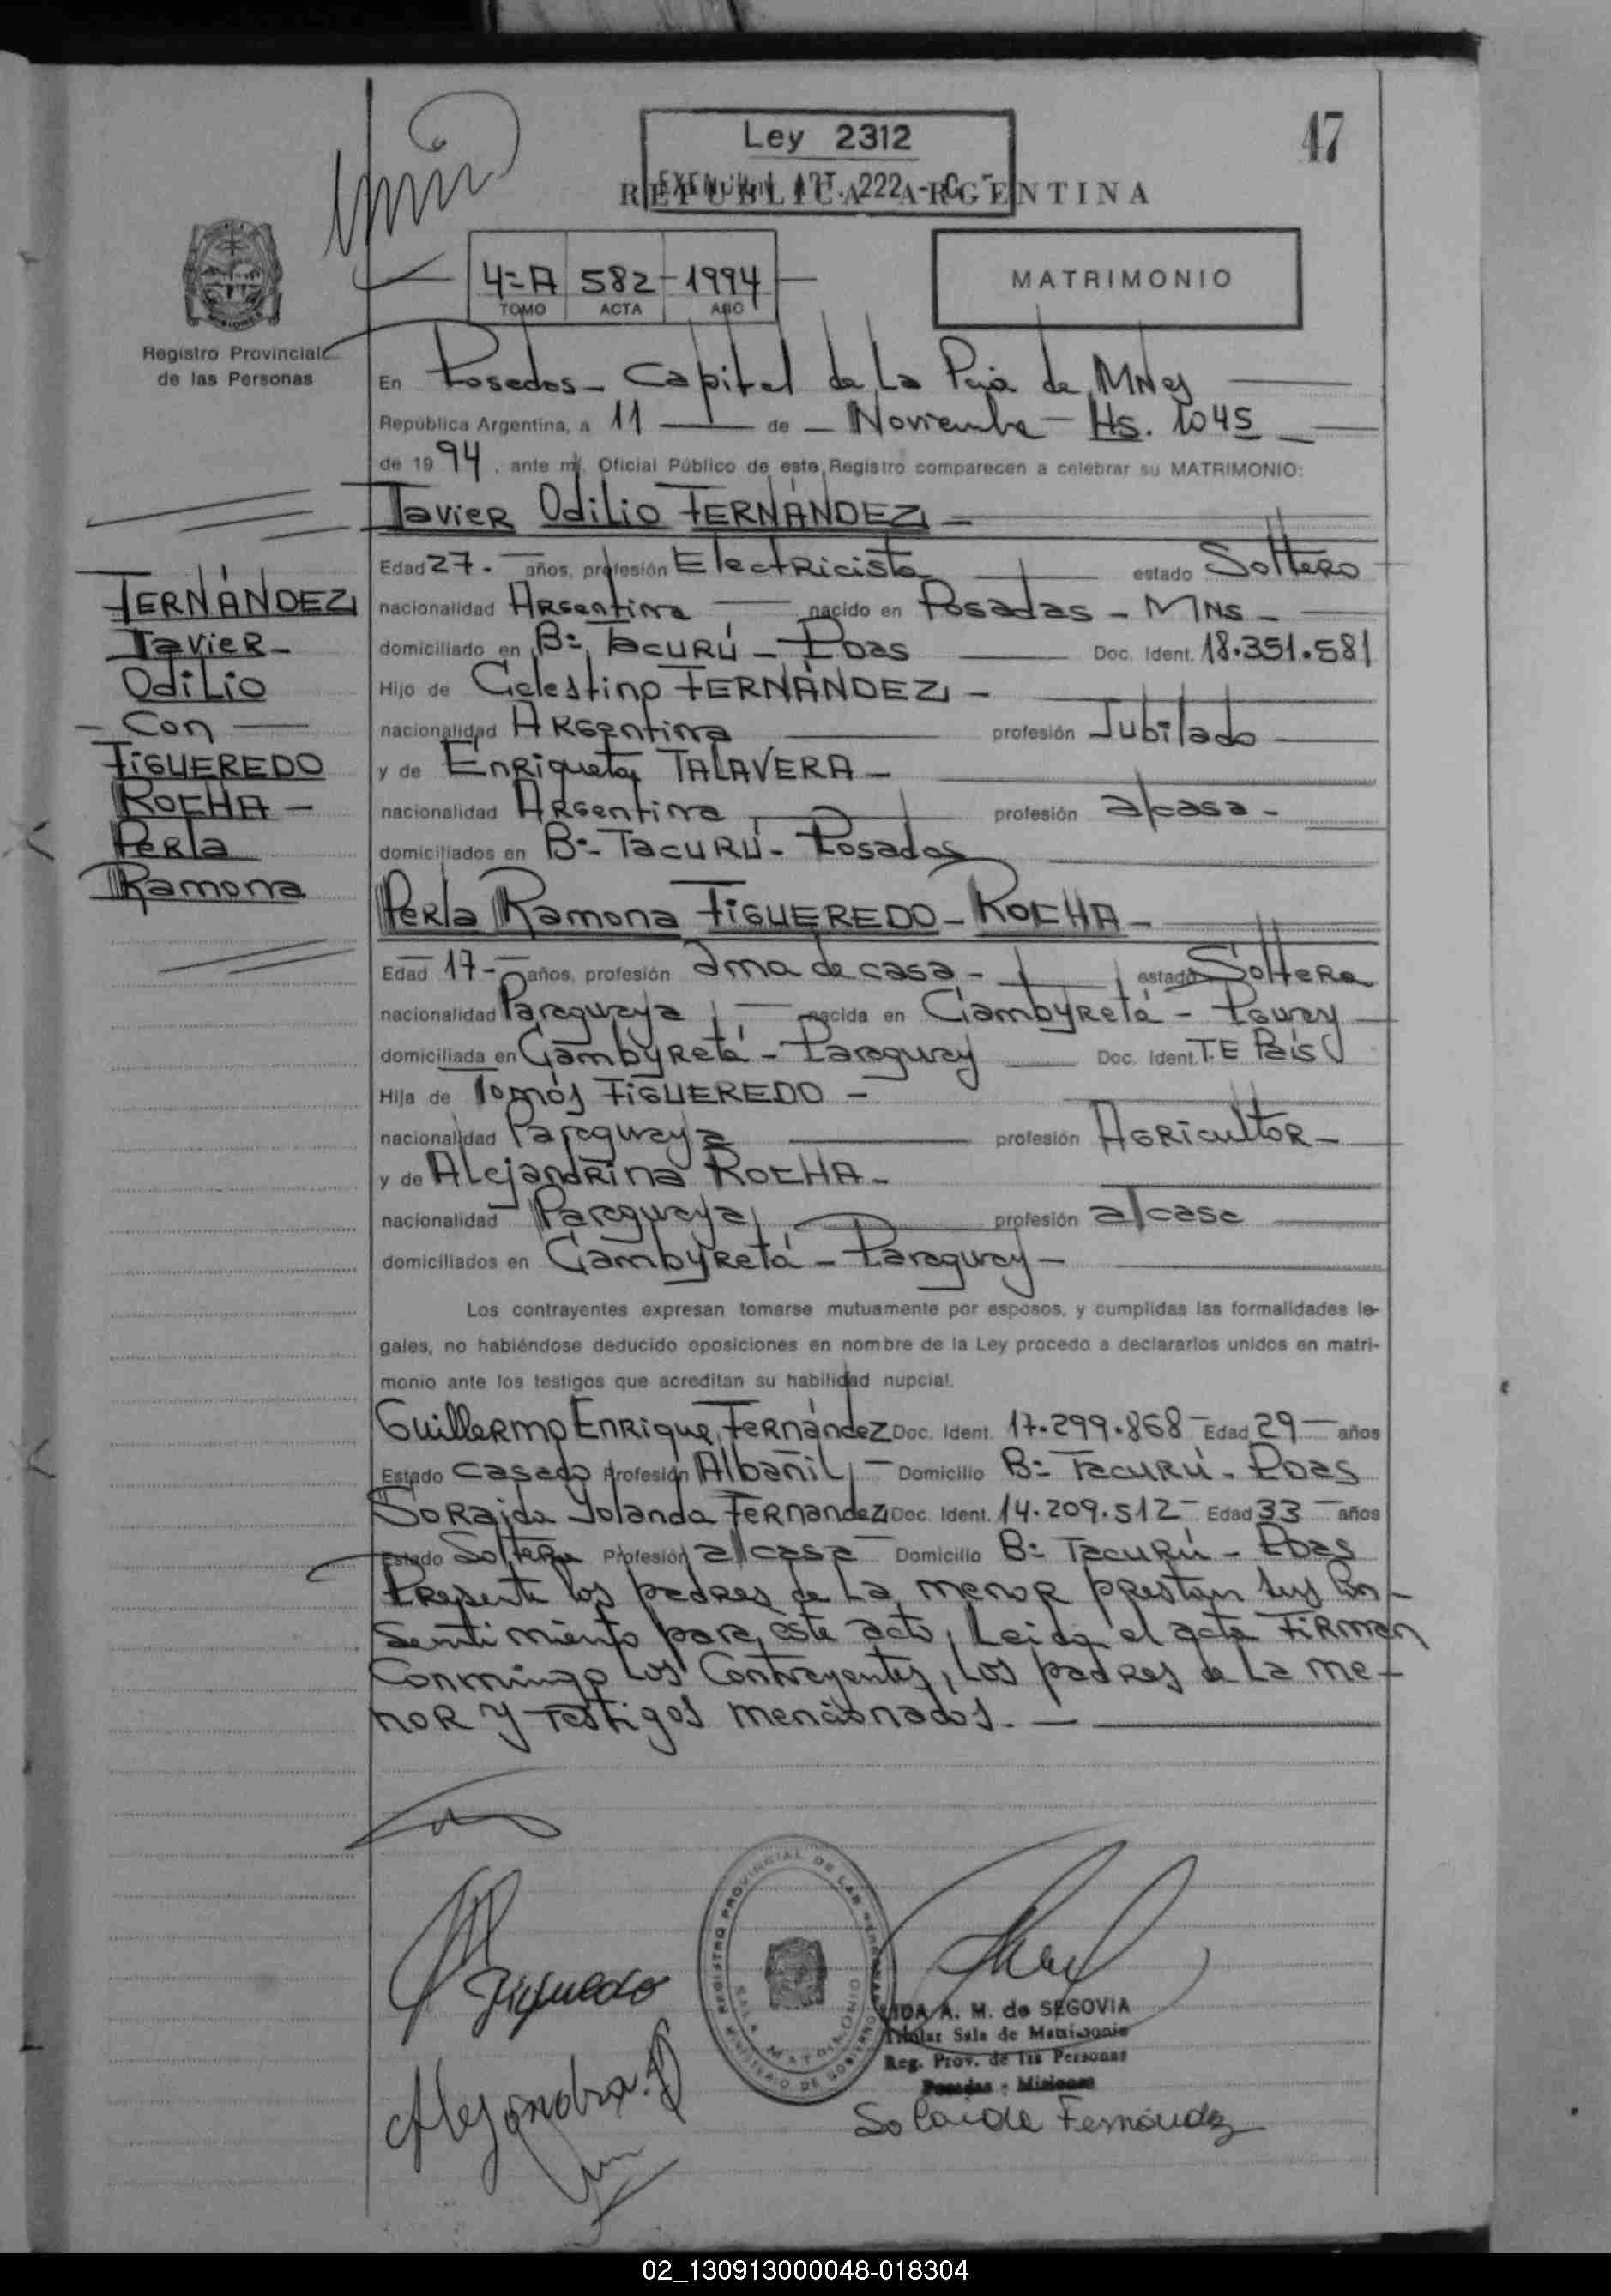 47
Ley 2312
ART. 222 - C. -
REPUBLICA ARGENTINA
4=A 582 - 1994
TOMO ACTA AÑO
MATRIMONIO
Registro Provincial
de las Personas
En Posadas - Capital de La Pcia de MNes
República Argentina, a 11 de - Noviembre - Hs. 1045
de 1994, ante mí, Oficial Público de este Registro comparecen a celebrar su MATRIMONIO:
Javier Odilio FERNÁNDEZ -
Edad 27.- años, profesión Electricista estado Soltero
nacionalidad Argentina nacido en Posadas - MNS -
domiciliado en B= Tacurú - Pdas Doc. Ident. 18.351.581
Hijo de Celestino FERNÁNDEZ -
nacionalidad Argentina profesión Jubilado
y de Enriqueta TALAVERA -
nacionalidad Argentina profesión a/casa -
domiciliados en B=- TACURÚ - Posadas
FERNÁNDEZ
Javier -
Odilio
- Con
FIGUEREDO
ROCHA -
Perla
Ramona
Perla Ramona FIGUEREDO - ROCHA -
Edad 17 - años, profesión Ama de casa - estado Soltera
nacionalidad Paraguaya nacida en Cambyretá - Pguay
domiciliada en Cambyretá - Paraguay Doc. Ident. T.E País
Hija de Tomás FIGUEREDO -
nacionalidad Paraguaya profesión Agricultor -
y de Alejandrina ROCHA -
nacionalidad Paraguaya profesión a/casa
domiciliados en Cambyretá - Paraguay -
Los contrayentes expresan tomarse mutuamente por esposos, y cumplidas las formalidades le-
gales, no habiéndose deducido oposiciones en nombre de la Ley procedo a declararlos unidos en matri-
monio ante los testigos que acreditan su habilidad nupcial.
Guillermo Enrique Fernández Doc. Ident. 17.299.868 - Edad 29 años
Estado Casado Profesión Albañil - Domicilio B= Tacurú - Pdas
Soraida Yolanda Fernandez Doc. Ident. 14.209.512 - Edad 33 años
Estado Soltera Profesión a/casa Domicilio B= Tacurú - Pdas
Presente los padres de La menor prestan sus Con-
sentimiento para este acto, Leida el acta Firman
Conmingo Los Contrayentes, Los padres de La me-
nor y testigos mencionados. -
Figueredo
REGISTRO PROVINCIAL DE LAS PERSONAS
MINISTERIO DE GOBIERNO
SALA MATRIMONIO
A. M. de SEGOVIA
Titular Sala de Matrimonio
Reg. Prov. de las Personas
Posadas - Misiones
Alejandra
Solaida Fernández
02_130913000048-018304